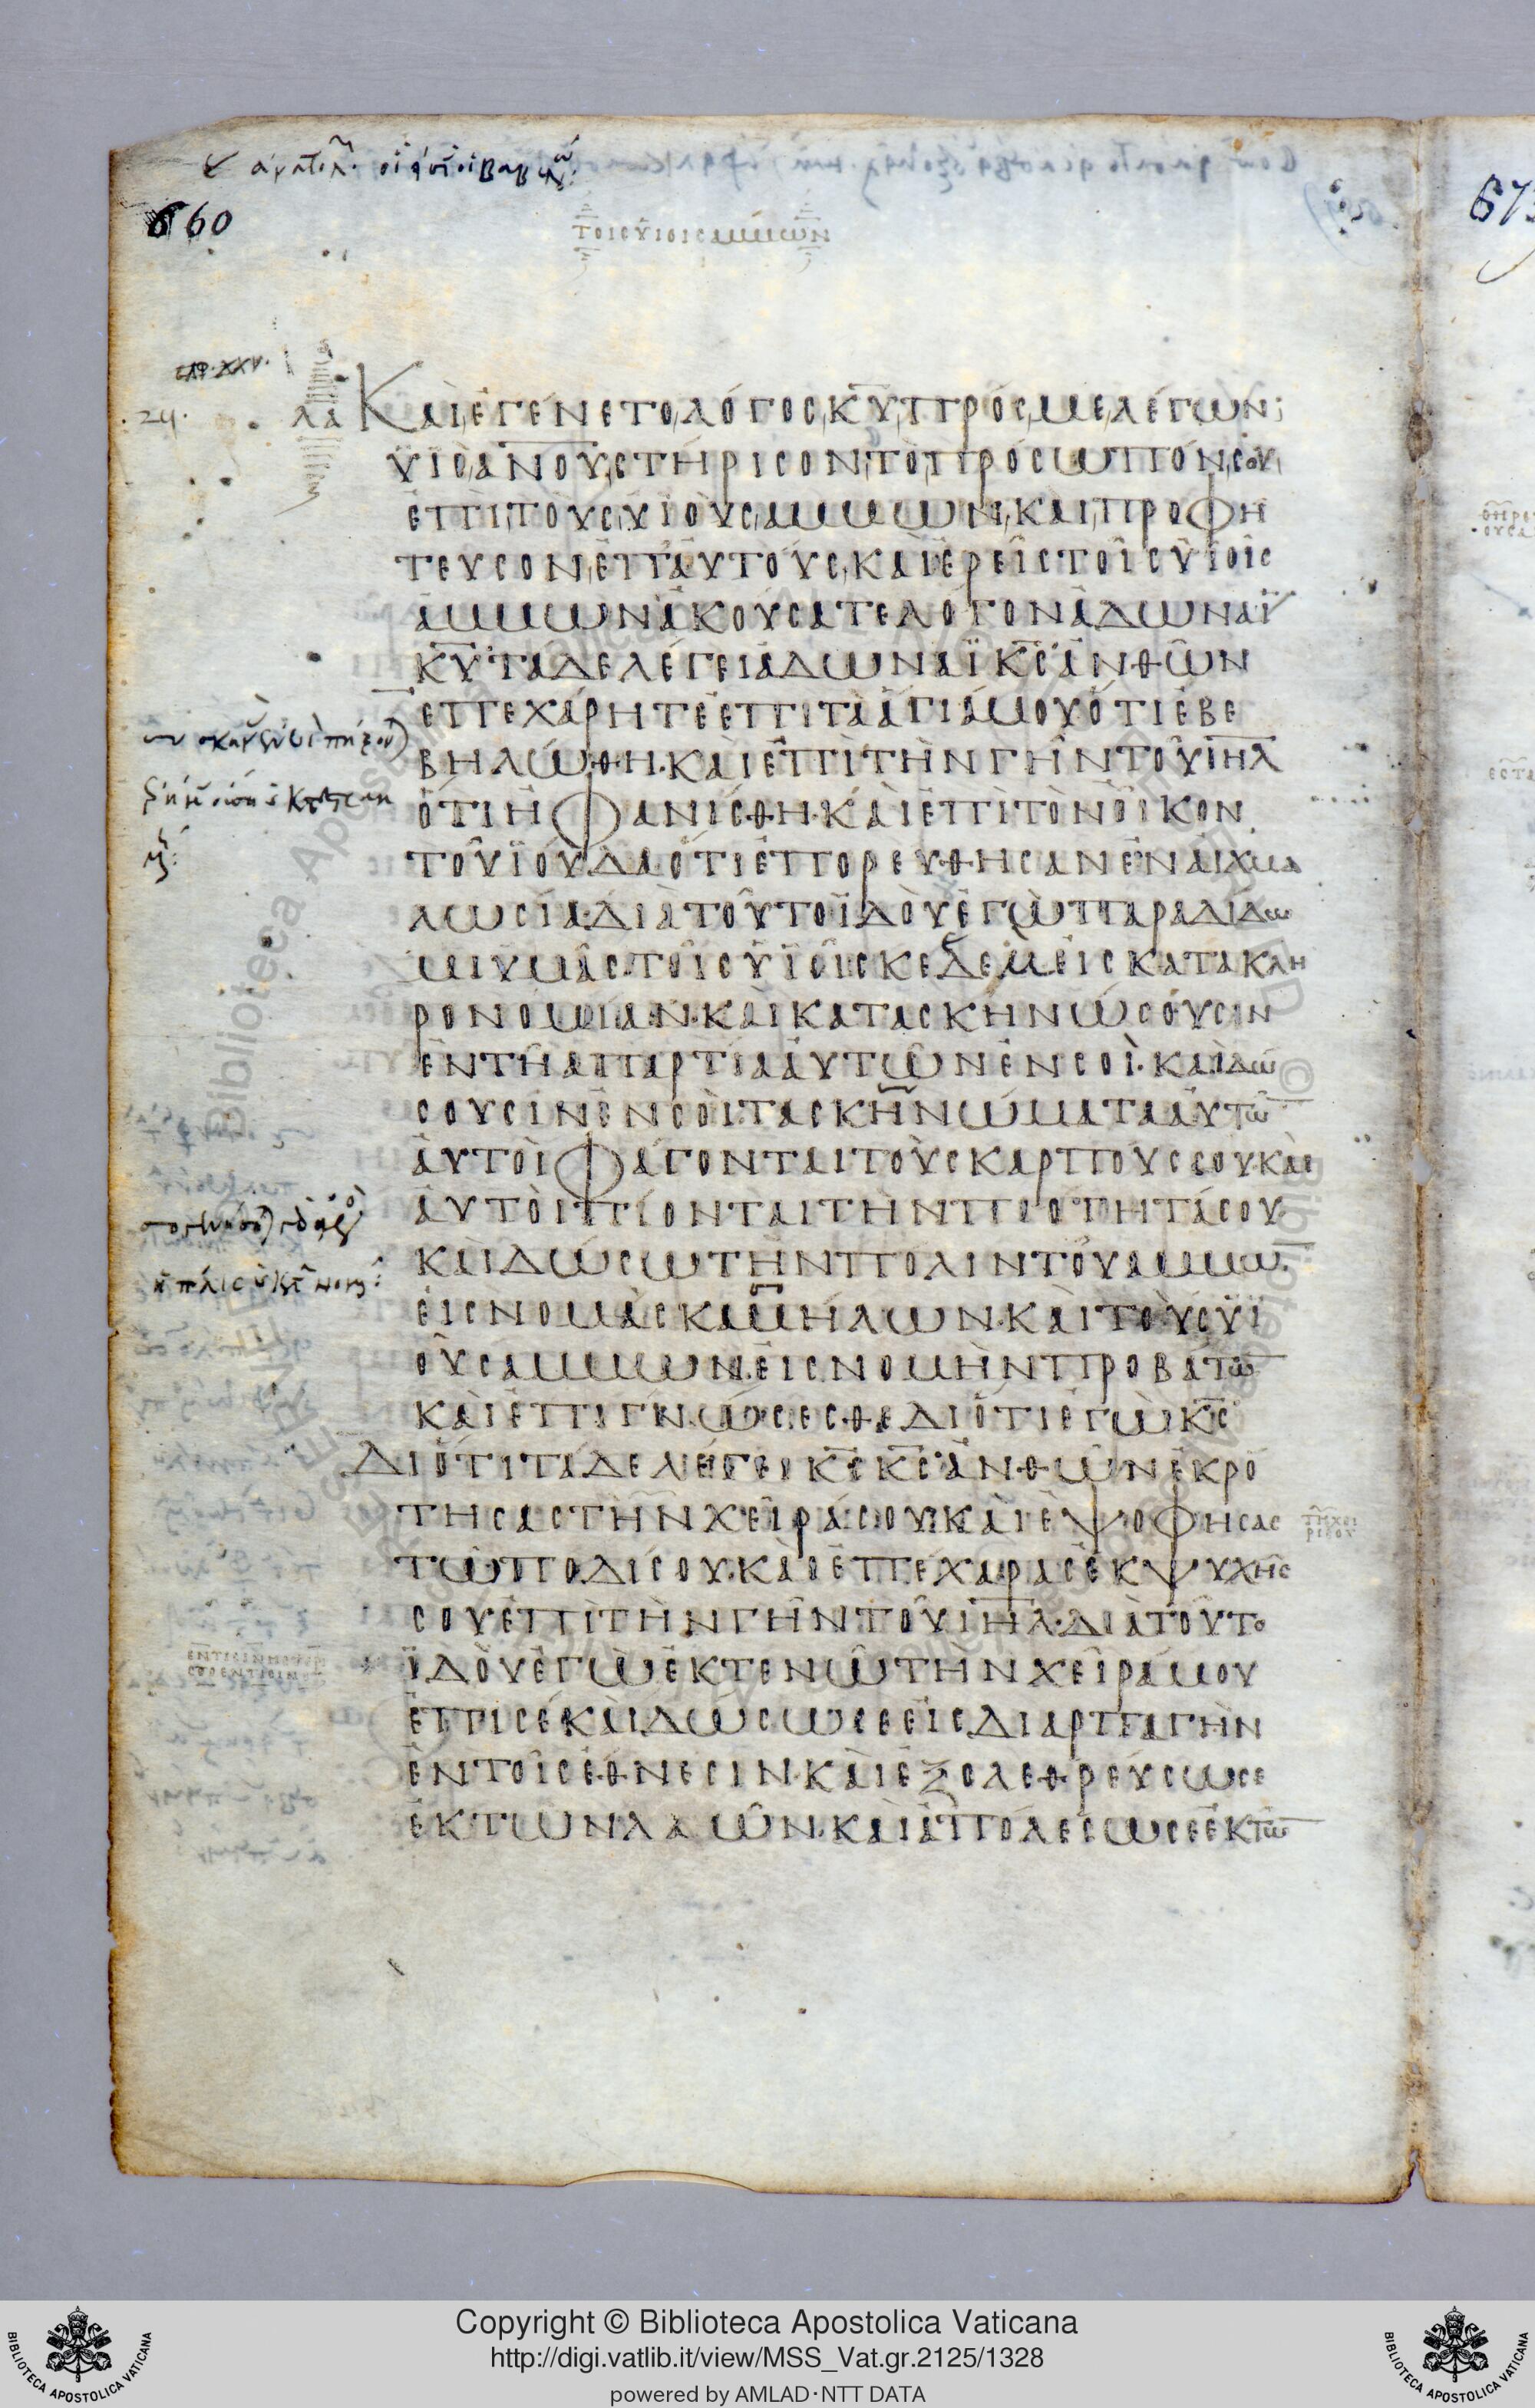 660
ΤΟΙΣ ΥΙΟΙΣ ΑΜΜΩΝ
CAP. XXV.
ΛΑ ΚΑΙ ΕΓΕΝΕΤΟ ΛΟΓΟΣ Κ̅Υ̅ ΠΡΟΣ ΜΕ ΛΕΓΩΝ
ΥΙΕ Α̅Ν̅ΟΥ ΣΤΗΡΙΣΟΝ ΤΟ ΠΡΟΣΩΠΟΝ ΣΟΥ
ΕΠΙ ΤΟΥΣ ΥΙΟΥΣ ΑΜΜΩΝ ΚΑΙ ΠΡΟΦΗ
ΤΕΥΣΟΝ ΕΠ ΑΥΤΟΥΣ ΚΑΙ ΕΡΕΙΣ ΤΟΙΣ ΥΙΟΙΣ
ΑΜΜΩΝ ΑΚΟΥΣΑΤΕ ΛΟΓΟΝ ΑΔΩΝΑΪ
Κ̅Υ̅ ΤΑΔΕ ΛΕΓΕΙ ΑΔΩΝΑΪ Κ̅Σ̅ ΑΝΘ ΩΝ
ΕΠΕΧΑΡΗΤΕ ΕΠΙ ΤΑ ΑΓΙΑ ΜΟΥ ΟΤΙ ΕΒΕ
ΒΗΛΩΘΗ ΚΑΙ ΕΠΙ ΤΗΝ ΓΗΝ ΤΟΥ Ι̅Η̅Λ̅
ΟΤΙ ΗΦΑΝΙΣΘΗ ΚΑΙ ΕΠΙ ΤΟΝ ΟΙΚΟΝ
ΤΟΥ ΪΟΥΔΑ ΟΤΙ ΕΠΟΡΕΥΘΗΣΑΝ ΕΝ ΑΙΧΜΑ
ΛΩΣΙΑ ΔΙΑ ΤΟΥΤΟ ΪΔΟΥ ΕΓΩ ΠΑΡΑΔΙΔΩ
ΜΙ ΥΜΑΣ ΤΟΙΣ ΥΪΟΙΣ ΚΕΔΕΜ ΕΙΣ ΚΑΤΑΚΛΗ
ΡΟΝΟΜΙΑΝ ΚΑΙ ΚΑΤΑΣΚΗΝΩΣΟΥΣΙΝ
ΕΝ ΤΗ ΑΠΑΡΤΙΑ ΑΥΤΩΝ ΕΝ ΣΟΙ ΚΑΙ ΔΩ
ΣΟΥΣΙΝ ΕΝ ΣΟΙ ΤΑ ΣΚΗΝΩΜΑΤΑ ΑΥΤΩ̅
ΑΥΤΟΙ ΦΑΓΟΝΤΑΙ ΤΟΥΣ ΚΑΡΠΟΥΣ ΣΟΥ ΚΑΙ
ΑΥΤΟΙ ΠΙΟΝΤΑΙ ΤΗΝ ΠΙΟΤΗΤΑ ΣΟΥ
ΚΑΙ ΔΩΣΩ ΤΗΝ ΠΟΛΙΝ ΤΟΥ ΑΜΜΩ̅
ΕΙΣ ΝΟΜΑΣ ΚΑΜΗΛΩΝ ΚΑΙ ΤΟΥΣ ΥΪ
ΟΥΣ ΑΜΜΩΝ ΕΙΣ ΝΟΜΗΝ ΠΡΟΒΑΤΩ̅
ΚΑΙ ΕΠΙΓΝΩΣΕΣΘΕ ΔΙΟΤΙ ΕΓΩ Κ̅Σ̅
ΔΙΟΤΙ ΤΑΔΕ ΛΕΓΕΙ Κ̅Σ̅ Κ̅Σ̅ ΑΝΘ ΩΝ ΕΚΡΟ
ΤΗΣΑΣ ΤΗΝ ΧΕΙΡΑ ΣΟΥ ΚΑΙ ΕΨΟΦΗΣΑΣ
ΤΗ ΧΕΙ
ΡΙ ΣΟΥ
ΤΩ ΠΟΔΙ ΣΟΥ ΚΑΙ ΕΠΕΧΑΡΑΣ ΕΚ ΨΥΧΗΣ
ΣΟΥ ΕΠΙ ΤΗΝ ΓΗΝ ΤΟΥ Ι̅Η̅Λ̅ ΔΙΑ ΤΟΥΤΟ
ΪΔΟΥ ΕΓΩ ΕΚΤΕΝΩ ΤΗΝ ΧΕΙΡΑ ΜΟΥ
ΕΠΙ ΣΕ ΚΑΙ ΔΩΣΩ ΣΕ ΕΙΣ ΔΙΑΡΠΑΓΗΝ
ΕΝ ΤΟΙΣ ΕΘΝΕΣΙΝ ΚΑΙ ΕΞΟΛΕΘΡΕΥΣΩ ΣΕ
ΕΚ ΤΩΝ ΛΑΩΝ ΚΑΙ ΑΠΟΛΕΣΩ ΣΕ ΕΚ ΤΩ̅
Copyright © Biblioteca Apostolica Vaticana
http://digi.vatlib.it/view/MSS_Vat.gr.2125/1328
powered by AMLAD·NTT DATA
BIBLIOTECA APOSTOLICA VATICANA
BIBLIOTECA APOSTOLICA VATICANA